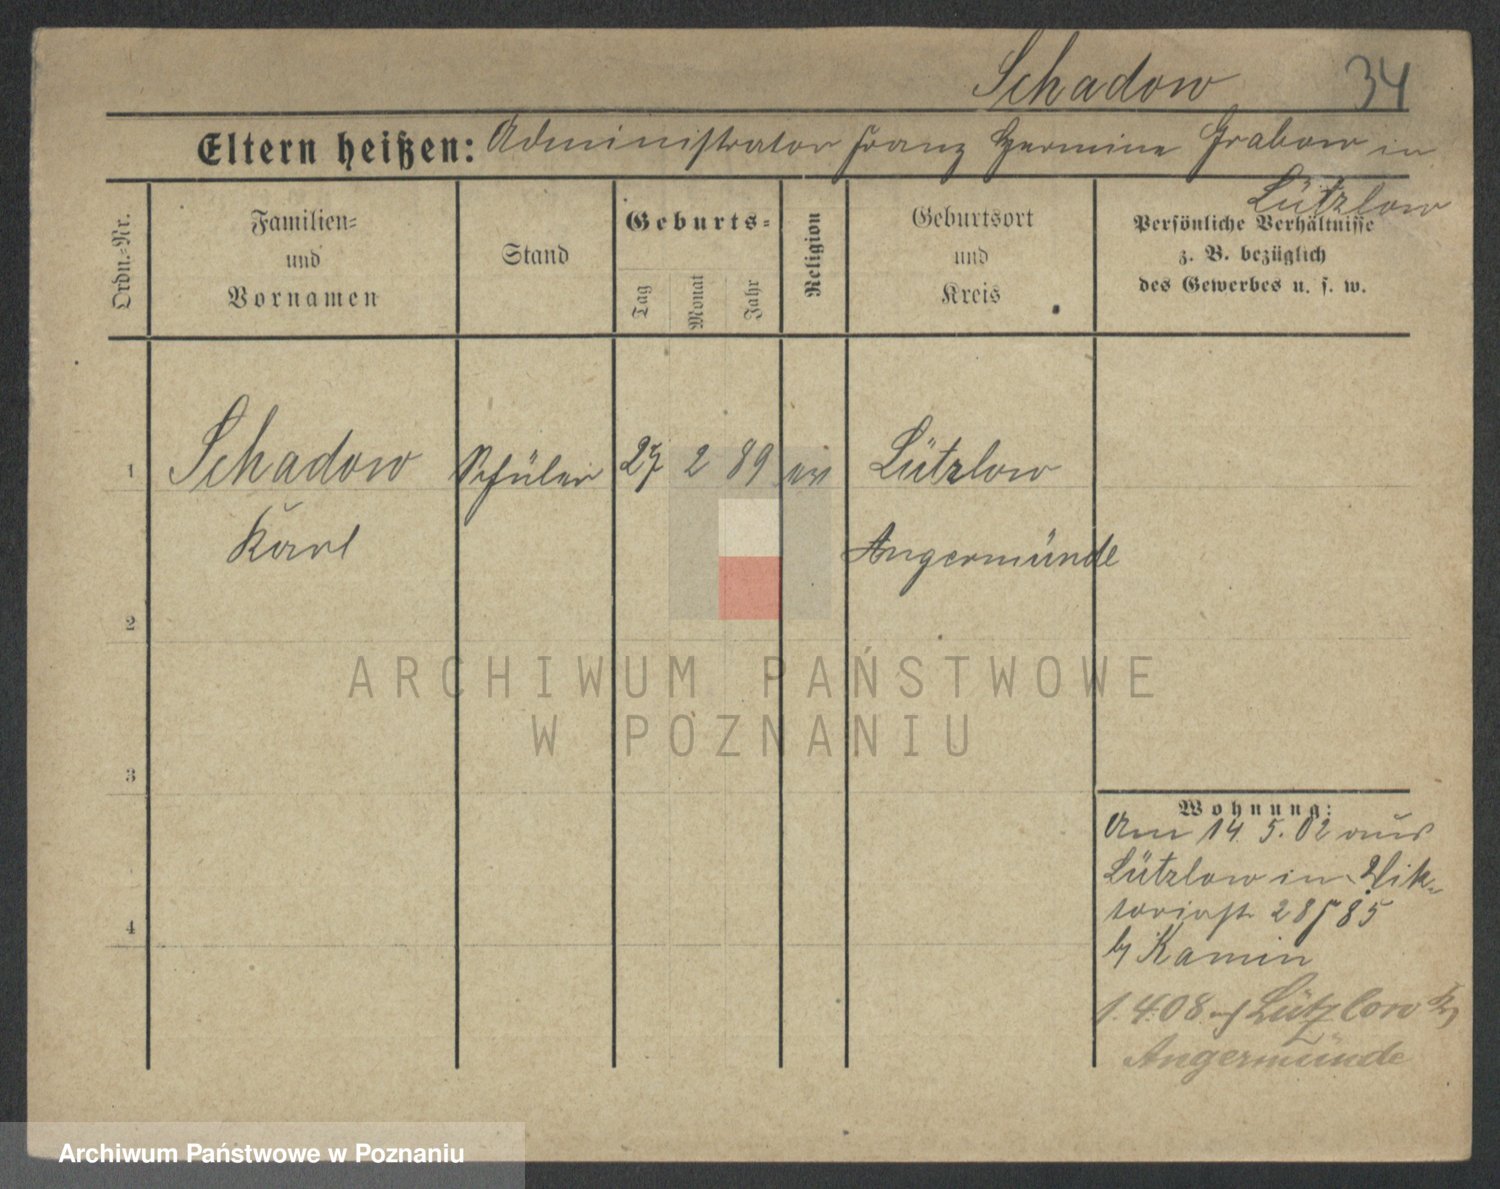 Schadow 34
Eltern heißen: Administrator Franz Hermine Grabow in
Lützlow
Ordn.-Nr.
Familien-
und
Vornamen
Stand
Geburts-
Tag
Monat
Jahr
Religion
Geburtsort
und
Kreis
Persönliche Verhältnisse
z. B. bezüglich
des Gewerbes u. s. w.
1 Schadow Schüler 27 2 89 ev Lützlow
Karl Angermünde
2
3
4
Wohnung:
Am 14. 5. 02 aus
Lützlow in Vik-
toriastr 28 85
b/ Kamin
1. 4. 08 Lützlow
Angermünde
ARCHIWUM PAŃSTWOWE
W POZNANIU
Archiwum Państwowe w Poznaniu